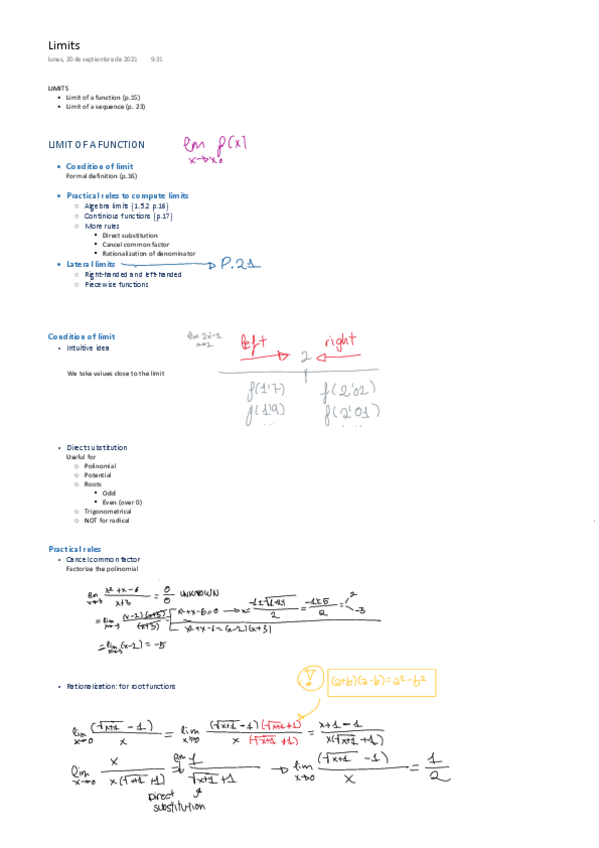 Limits
lunes, 20 de septiembre de 2021 9:31
LIMITS
• Limit of a function (p.15)
• Limit of a sequence (p. 23)
LIMIT OF A FUNCTION
lim f(x)
x→x₀
• Condition of limit
Formal definition (p.16)
• Practical rules to compute limits
○ Algebra limits (1.5.2 p.16)
○ Continious functions (p.17)
○ More rules
▪ Direct substitution
▪ Cancel common factor
▪ Rationalization of denominator
• Lateral limits → P.21
○ Right-handed and left-handed
○ Piecewise functions
Condition of limit
• Intuitive idea
left right
2
We take values close to the limit
f(1'7) f(2'02)
f(1'9) f(2'01)
... ...
• Direct substitution
Useful for
○ Polinomial
○ Potential
○ Roots
▪ Odd
▪ Even (over 0)
○ Trigonometrical
○ NOT for radical
Practical rules
• Cancel common factor
Factorize the polinomial
x²+x-6 / x+3 = 0/0 UNKNOWN
x²+x-6=0 → x=
x²+x-6=(x-2)(x+3)
(x-2) = -5
• Rationalization: for root functions
! (a+b)(a-b)=a²-b²
lim x→0 (√x+1 - 1) / x = lim x→0 (√x+1 - 1)(√x+1 + 1) / x (√x+1 + 1) = x+1-1 / x(√x+1 + 1)
lim x→0 x / x(√x+1 + 1) = 1 / √x+1 + 1 → lim x→0 (√x+1 - 1) / x = 1/2
Direct
substitution